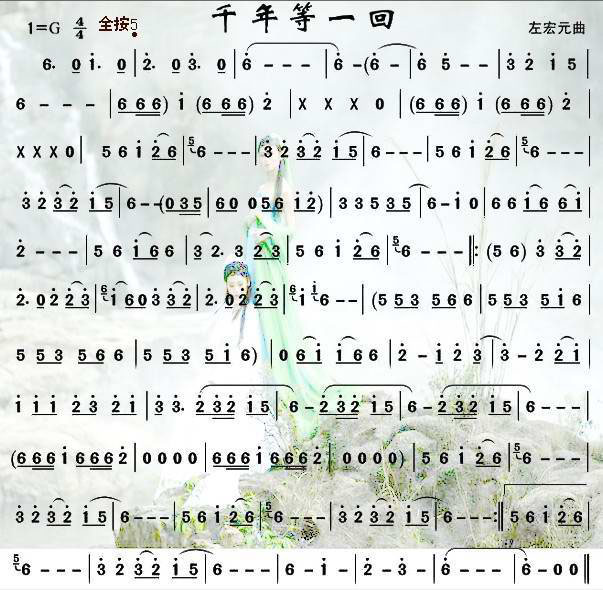 千年等一回
1=G 4/4 全按5̣ 左宏元曲
6. 0 i. 0 | 2̇. 0 3̇. 0 | 6 - - - | 6 - (6 - | 6 5 - - | 3̇ 2̇ i 5
6 - - - | (6 6 6) i (6 6 6) 2̇ | X X X 0 | (6 6 6) i (6 6 6) 2̇ |
X X X 0 | 5 6 i 2̇ 6 | 5 6 - - - | 3̇ 2̇ 3̇ 2̇ i 5 | 6 - - - | 5 6 i 2̇ 6 | 5 6 - - - |
3̇ 2̇ 3̇ 2̇ i 5 | 6 - - (0 3 5 | 6 0 0 5 6 i 2̇) | 3 3 5 3 5 | 6 - i 0 | 6 6 i 6 6 i |
2̇ - - - | 5 6 i 6 6 | 3̇ 2̇. 3̇ 2̇ 3̇ | 5 6 i 2̇ 6 | 5 6 - - ‖: (5 6) 3̇ 3̇ 2̇ |
2̇. 0 2̇ 2̇ 3̇ | 6 i 6 0 3̇ 3̇ 2̇ | 2̇. 0 2̇ 2̇ 3̇ | 6 i i 6 - - | (5 5 3 5 6 6 | 5 5 3 5 i 6
5 5 3 5 6 6 | 5 5 3 5 i 6) | 0 6 i i 6 6 | 2̇ - i 2̇ 3̇ | 3̇ - 2̇ 2̇ i |
i i i 2̇ 3̇ 2̇ i | 3̇ 3̇. 2̇ 3̇ 2̇ i 5 | 6 - 2̇ 3̇ 2̇ i 5 | 6 - 2̇ 3̇ 2̇ i 5 | 6 - - - |
(6 6 6 i 6 6 6 2̇ | 0 0 0 0 | 6 6 6 i 6 6 6 2̇ | 0 0 0 0) | 5 6 i 2̇ 6 | 5 6 - - - |
3̇ 2̇ 3̇ 2̇ i 5 | 6 - - - | 5 6 i 2̇ 6 | 6 - - - | 3̇ 2̇ 3̇ 2̇ i 5 | 6 - - - :‖ 5 6 i 2̇ 6
5 6 - - - | 3̇ 2̇ 3̇ 2̇ i 5 | 6 - - - | 6 - i - | 2̇ - 3̇ - | 6 - - - | 6 - 0 0 ‖